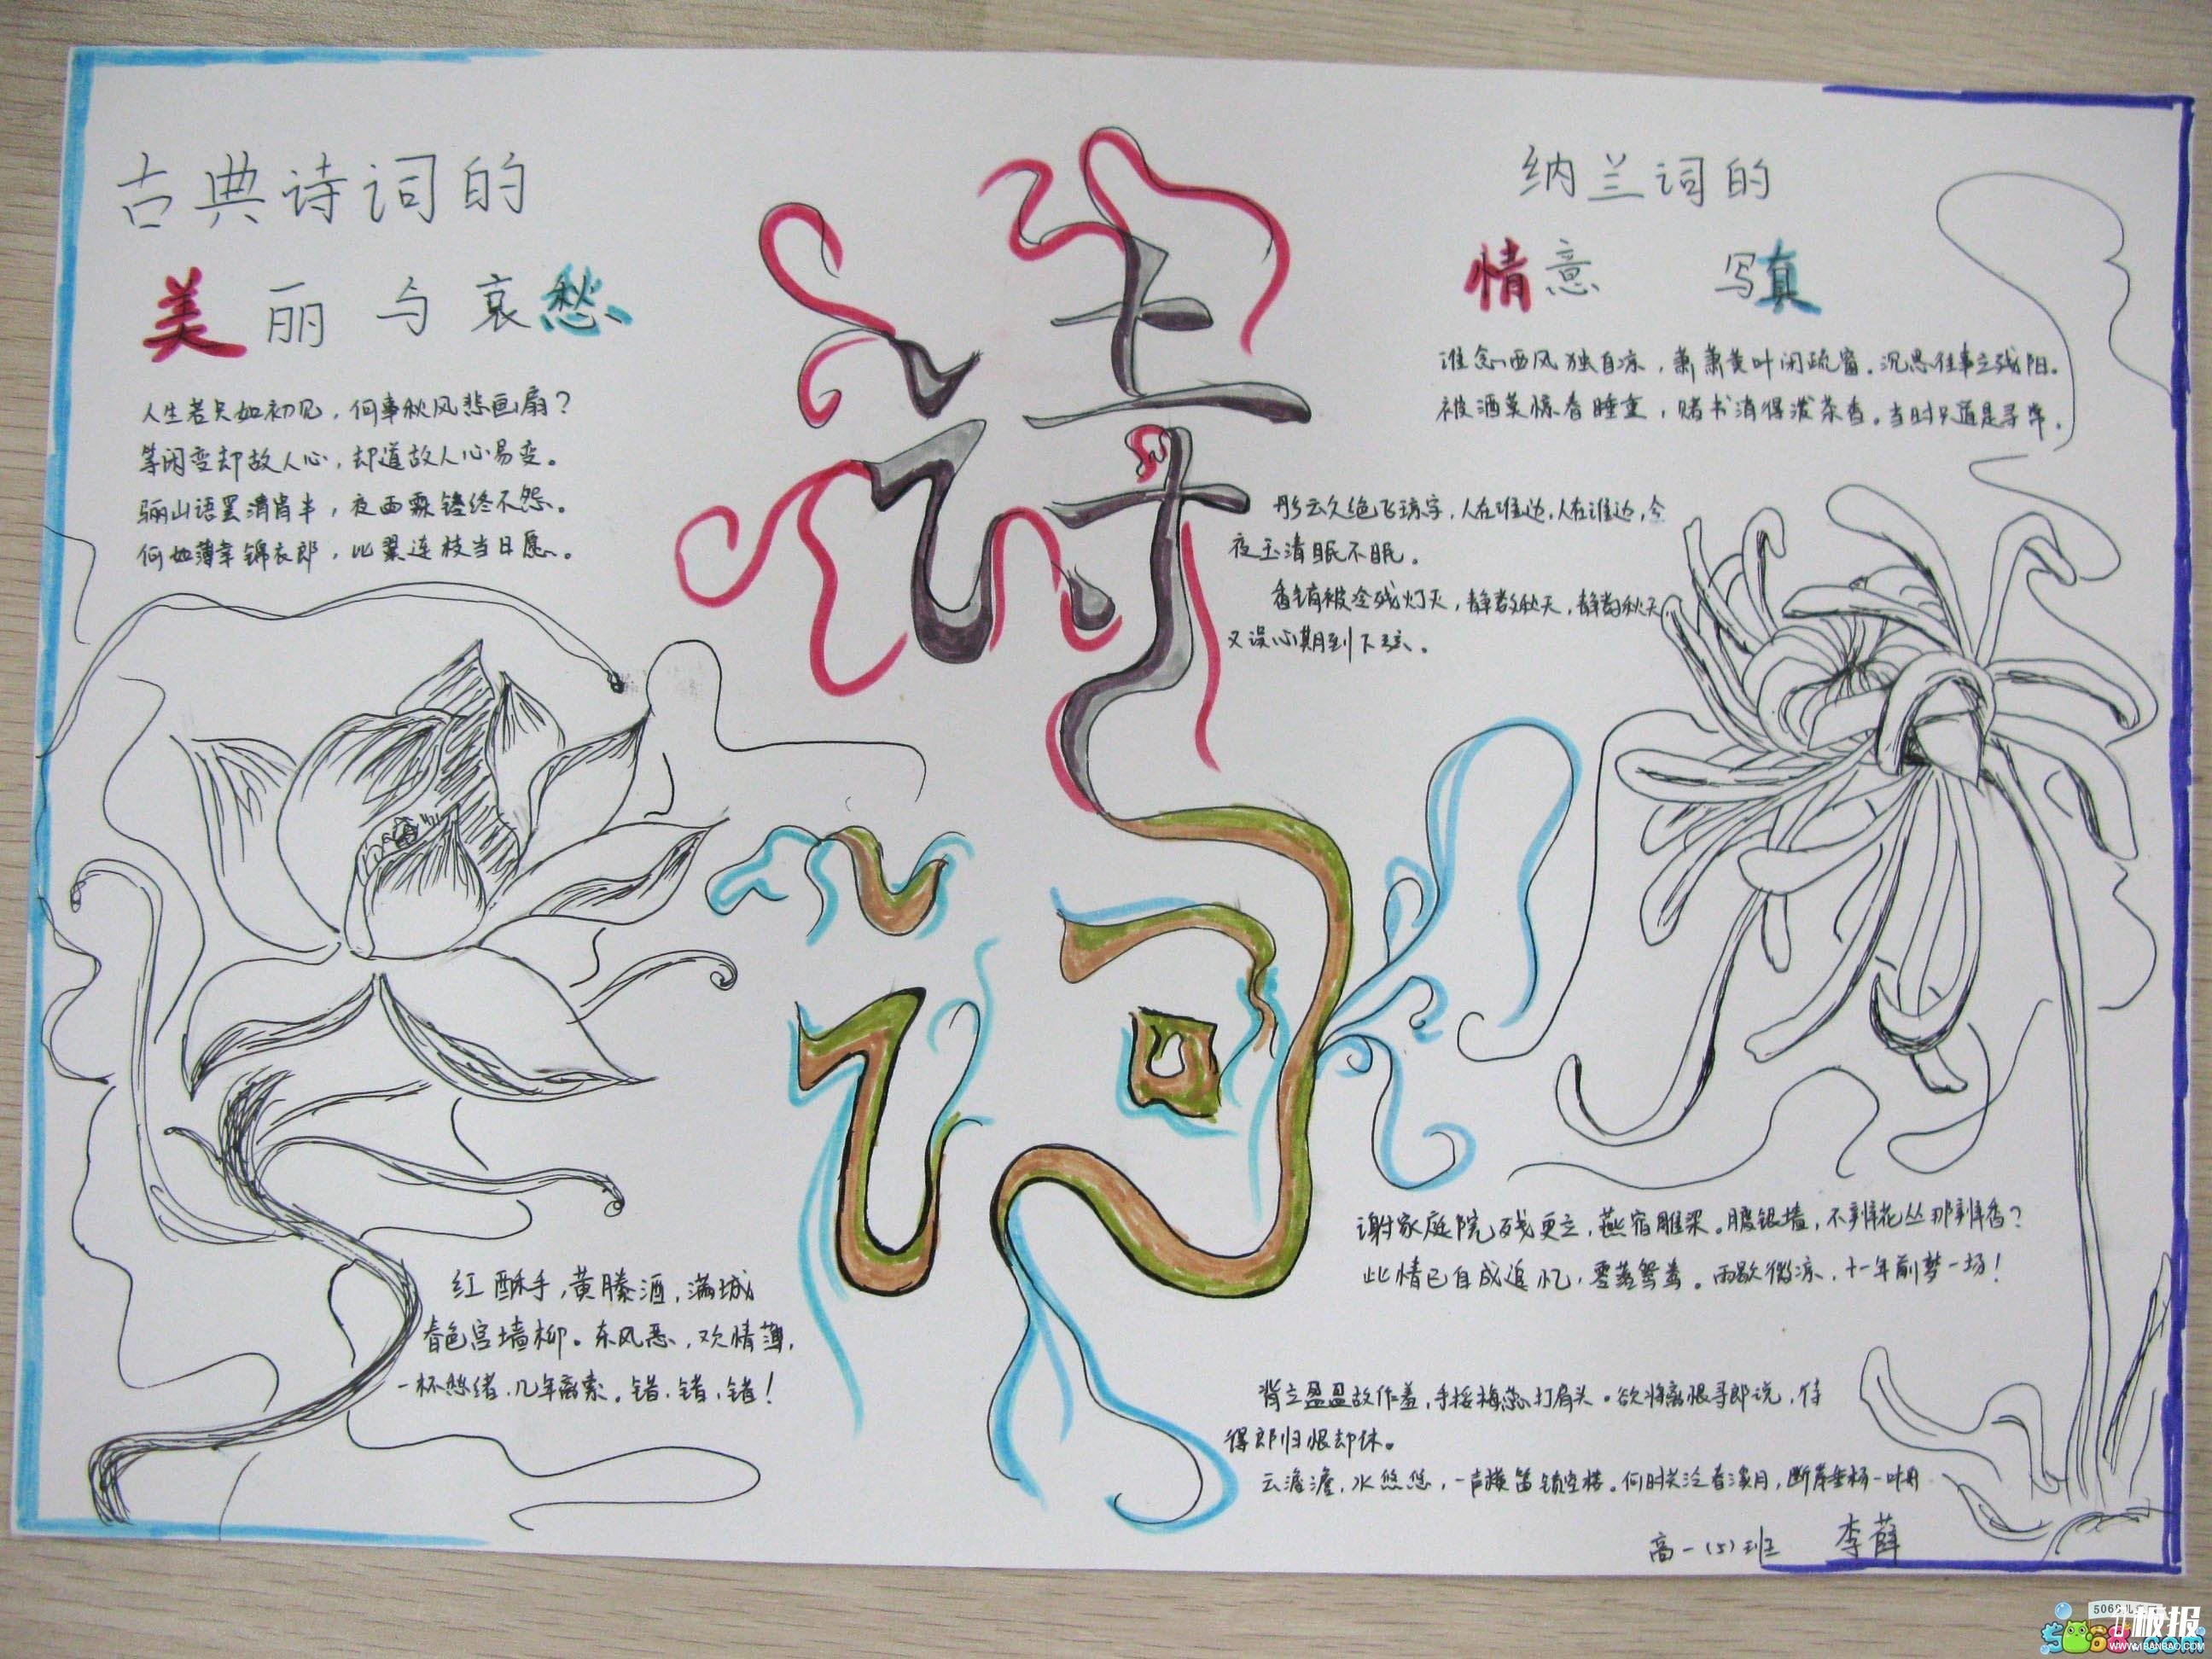 古典诗词的
美丽与哀愁
人生若只如初见，何事秋风悲画扇？
等闲变却故人心，却道故人心易变。
骊山语罢清宵半，夜雨霖铃终不怨。
何如薄幸锦衣郎，比翼连枝当日愿。
红酥手，黄縢酒，满城
春色宫墙柳。东风恶，欢情薄，
一杯愁绪，几年离索。错，错，错！
诗
词
纳兰词的
情意 写真
谁念西风独自凉，萧萧黄叶闭疏窗。沉思往事立残阳。
被酒莫惊春睡重，赌书消得泼茶香。当时只道是寻常。
彤云久绝飞琼字，人在谁边，人在谁边，今
夜玉清眠不眠。
香销被冷残灯灭，静数秋天，静数秋天，
又误心期到下弦。
谢家庭院残更立，燕宿雕梁。月度银墙，不辨花丛那辨香？
此情已自成追忆，零落鸳鸯。雨歇微凉，十一年前梦一场！
背立盈盈故作羞，手挼梅蕊打肩头。欲将离恨寻郎说，待
得郎归恨却休。
云澹澹，水悠悠，一声横笛锁空楼。何时共泛春溪月，断岸垂杨一叶舟
高一（5）班 李薛
极报
WWW.1BANBAO.COM